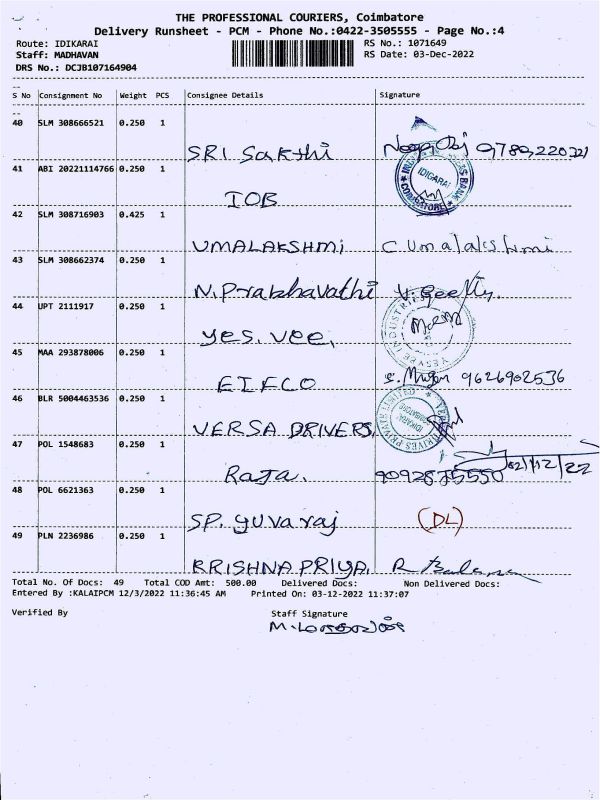 THE PROFESSIONAL COURIERS, Coimbatore
Delivery Runsheet - PCM - Phone No.:0422-3505555 - Page No.:4
Route: IDIKARAI RS No.: 1071649
Staff: MADHAVAN RS Date: 03-Dec-2022
DRS No.: DCJB107164904
S No Consignment No Weight PCS Consignee Details Signature
40 SLM 308666521 0.250 1
SRI Sakthi
41 ABI 20221114766 0.250 1
IDIGARAI
COIMBATORE
IOB
42 SLM 308716903 0.425 1
UMALAKSHMI C Umalakshmi
43 SLM 308662374 0.250 1
N. Prabhavathi V. Geetha
44 UPT 2111917 0.250 1
yes. vee.
45 MAA 293878006 0.250 1
EIFCO 9626902536
46 BLR 5004463536 0.250 1
VERSA DRIVERS
47 POL 1548683 0.250 1
Raja. 02/12/22
48 POL 6621363 0.250 1
SP. yuvaraj (DL)
49 PLN 2236986 0.250 1
KRISHNA PRIYA.
Total No. Of Docs: 49 Total COD Amt: 500.00 Delivered Docs: Non Delivered Docs:
Entered By :KALAIPCM 12/3/2022 11:36:45 AM Printed On: 03-12-2022 11:37:07
Verified By Staff Signature